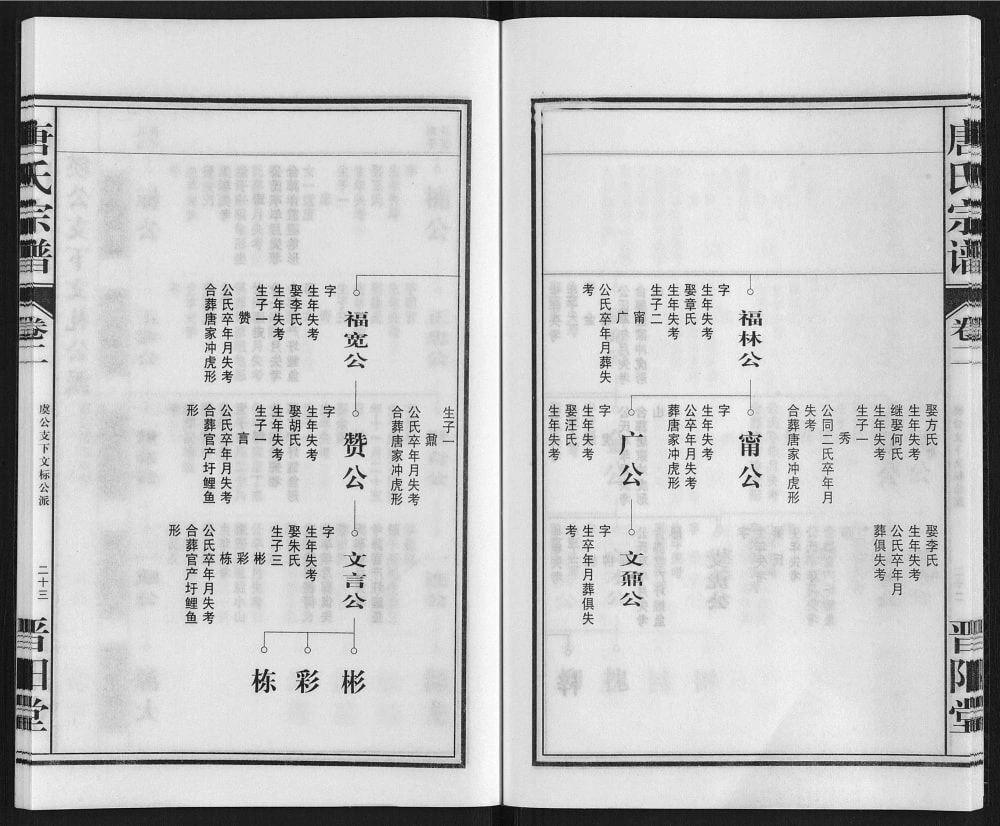 唐氏宗谱
卷二
晋阳堂
娶方氏
生年失考
继娶何氏
生年失考
生子一
秀
公同二氏卒年月
失考
合葬唐家冲虎形
娶李氏
生年失考
公氏卒年月
葬俱失考
福林公
字
生年失考
娶章氏
生年失考
生子二
甯
广
公氏卒年月葬失
考
甯公
字
生年失考
公卒年月失考
葬唐家冲虎形
广公
字
生年失考
娶汪氏
生年失考
文鼐公
字
生卒年月葬俱失
考
生子一
鼐
公氏卒年月失考
合葬唐家冲虎形
福宽公
字
生年失考
娶李氏
生年失考
生子一
赞
公氏卒年月失考
合葬唐家冲虎形
赞公
字
生年失考
娶胡氏
生年失考
生子一
言
公氏卒年月失考
合葬官产圩鲤鱼
形
文言公
字
生年失考
娶朱氏
生子三
彬
彩
栋
公氏卒年月失考
合葬官产圩鲤鱼
形
彬
彩
栋
唐氏宗谱
卷二
虞公支下文标公派
二十三
晋阳堂